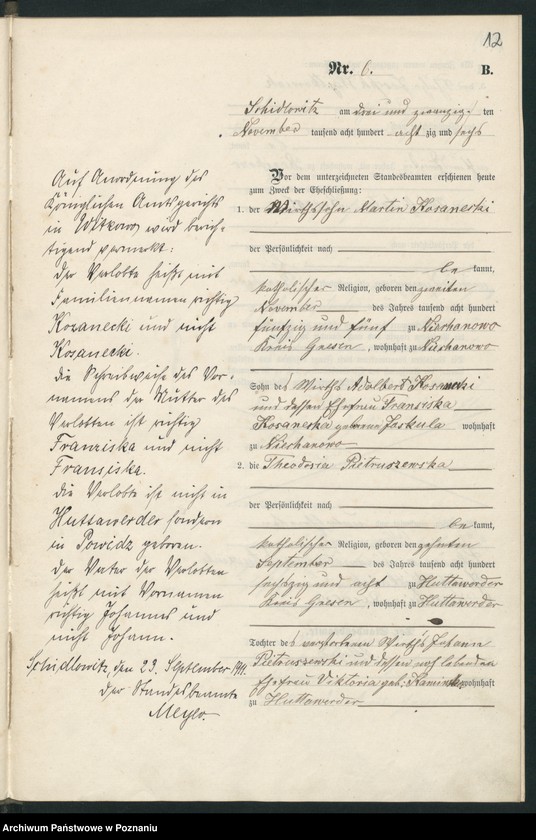 12
Nr. 6. B.
Schidlowitz am drei und zwanzig ten
November tausend acht hundert acht zig und sechs
Vor dem unterzeichneten Standesbeamten erschienen heute
zum Zweck der Eheschließung:
1. der Wirthssohn Martin Kosanecki
der Persönlichkeit nach
be kannt,
katholischer Religion, geboren den zweiten
November des Jahres tausend acht hundert
fünfzig und fünf zu Niechanowo
Kreis Gnesen, wohnhaft zu Niechanowo
Sohn des Wirths Adalbert Kosanecki
und dessen Ehefrau Fransiska
Kosanecka geborene Jaskula wohnhaft
zu Niechanowo
2. die Theodosia Pietruszewska
der Persönlichkeit nach
be kannt,
katholischer Religion, geboren den zehnten
September des Jahres tausend acht hundert
sechszig und acht zu Huttawerder
Kreis Gnesen, wohnhaft zu Huttawerder
Tochter des verstorbenen Wirths Johann
Pietruszewski und dessen noch lebenden
Ehefrau Viktoria geb: wohnhaft
zu Huttawerder
Auf Anordnung des
Königlichen Amtsgerichts
in Witkowo wird berich-
tigend vermerkt:
Der Verlobte heißt mit
Familiennamen richtig
Kozanecki und nicht
Kosanecki.
Die Schreibweise des Vor-
namens der Mutter des
Verlobten ist richtig
Franziska und nicht
Fransiska.
Die Verlobte ist nicht in
Huttawerder sondern
in Powidz geboren.
Der Vater der Verlobten
heißt mit Vornamen
richtig Johannes und
nicht Johann.
Schidlowitz, den 23. September
Der Standesbeamte
Archiwum Państwowe w Poznaniu